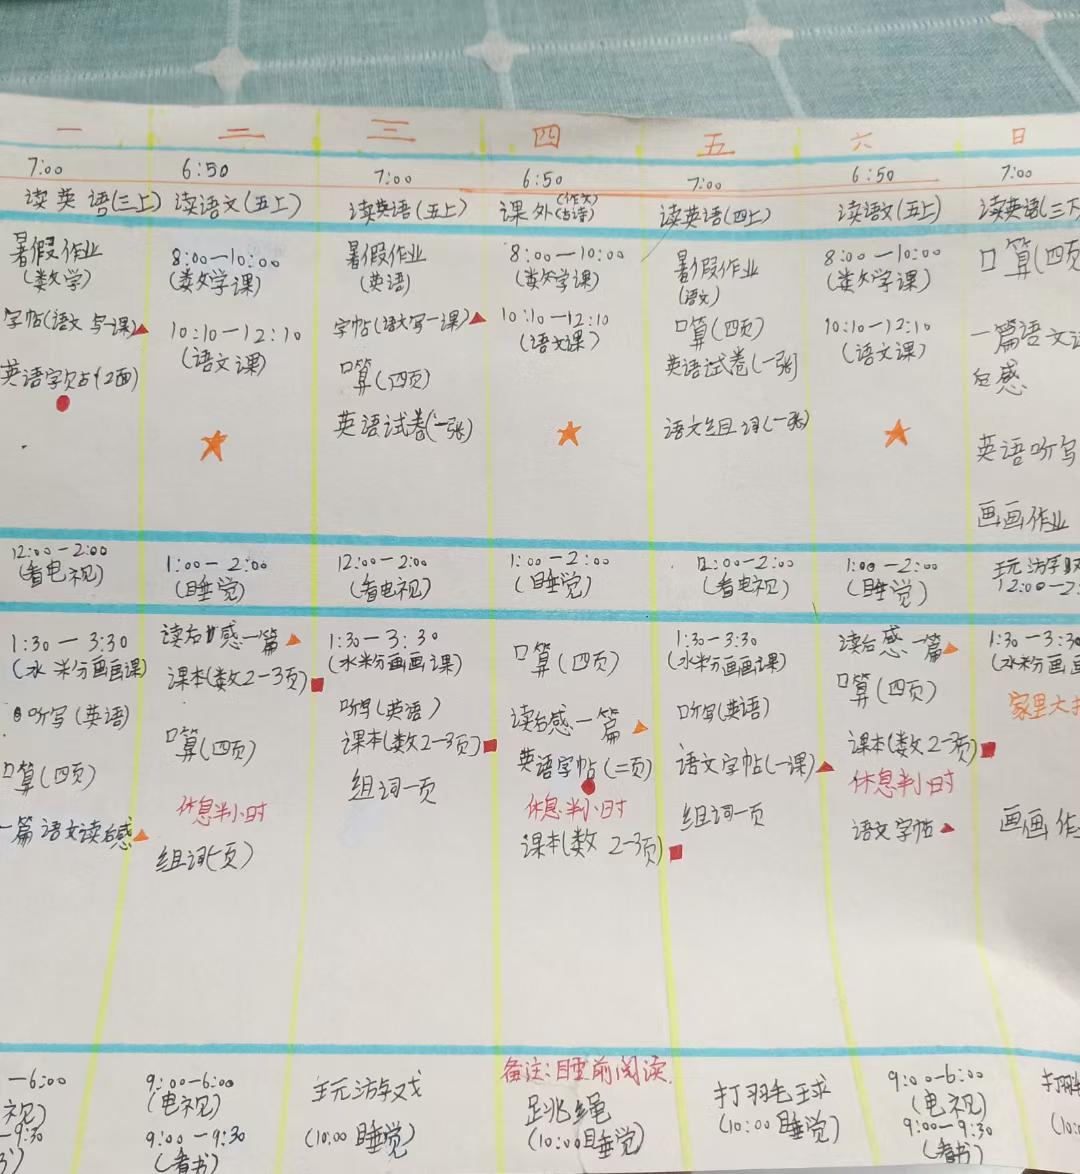 一 二 三 四 五 六 日
7:00 6:50 7:00 6:50 7:00 6:50 7:00
读英语(三上) 读语文(五上) 读英语(五上) 课外(作文古诗) 读英语(四上) 读语文(五上) 读英语(三下
暑假作业
(数学)
字帖(语文写一课)
英语字贴(2面)
8:00—10:00
(数学课)
10:10—12:10
(语文课)
暑假作业
(英语)
字帖(语文写一课)
口算(四页)
英语试卷(一张)
8:00—10:00
(数学课)
10:10—12:10
(语文课)
暑假作业
(语文)
口算(四页)
英语试卷(一张)
语文组词(一张)
8:00—10:00
(数学课)
10:10—12:10
(语文课)
口算(四页
一篇语文读
后感
英语听写
画画作业
12:00—2:00
(看电视)
1:00—2:00
(睡觉)
12:00—2:00
(看电视)
1:00—2:00
(睡觉)
12:00—2:00
(看电视)
1:00—2:00
(睡觉)
玩游戏
12:00—2:
1:30—3:30
(水粉画画课)
听写(英语)
口算(四页)
一篇语文读后感
读后感一篇
课本(数2—3页)
口算(四页)
休息半小时
组词(一页)
1:30—3:30
(水粉画画课)
听写(英语)
课本(数2—3页)
组词一页
口算(四页)
读后感一篇
英语字帖(二页)
休息半小时
课本(数2—3页)
1:30—3:30
(水粉画画课)
听写(英语)
语文字帖(一课)
组词一页
读后感一篇
口算(四页)
课本(数2—3页)
休息半小时
语文字帖
1:30—3:30
(水粉画画
家里大扫
画画作
—6:00
视)
—9:30
9:00—6:00
(电视)
9:00—9:30
(看书)
玩游戏
(10:00睡觉)
备注:睡前阅读
跳绳
(10:00睡觉)
打羽毛球
(10:00睡觉)
9:00—6:00
(电视)
9:00—9:30
(看书)
打羽
(10: